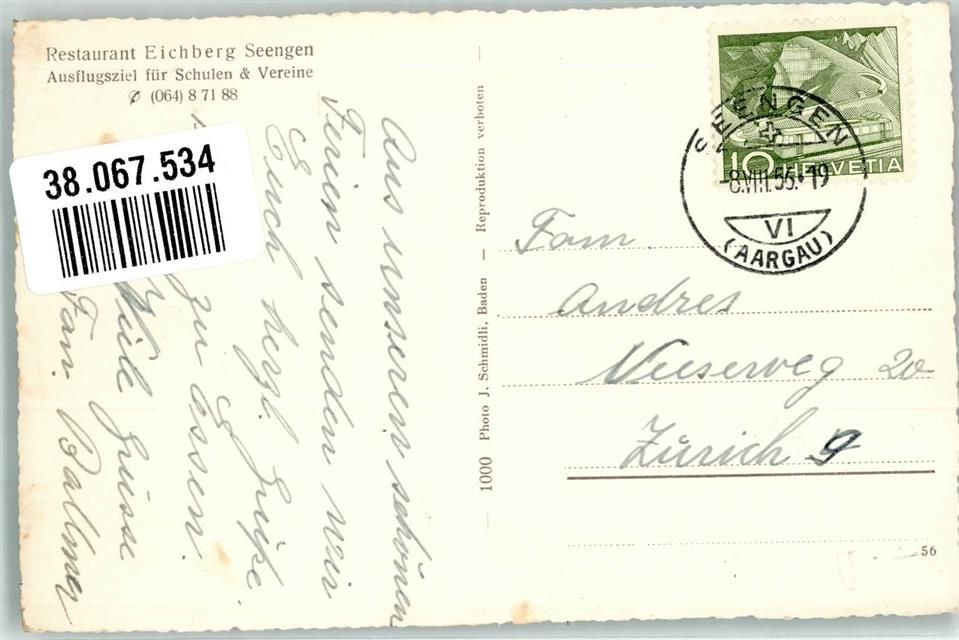 Restaurant Eichberg Seengen
Ausflugsziel für Schulen & Vereine
(064) 8 71 88
38.067.534
Aus unseren schönen
Ferien senden wir
Euch herzl. Grüße.
zu essen.
Viele Grüsse
Fam. Ballmer
1000 Photo J. Schmidli, Baden – Reproduktion verboten
HELVETIA
10
SEENGEN
-8.VIII.55.-19
VI
(AARGAU)
Fam.
Andres
20
Zürich 9
56